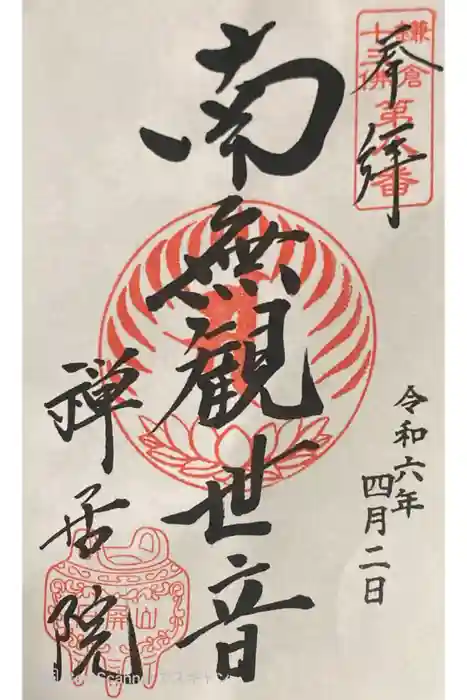 鎌倉
十三佛
第八番
奉拝
南無觀世音
令和六年
四月二日
禅居院